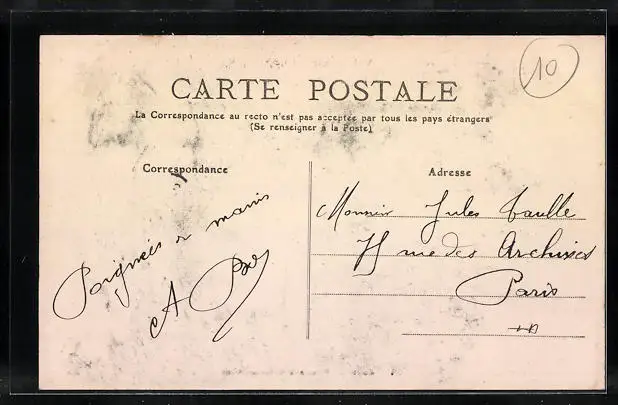 10
CARTE POSTALE
La Correspondance au recto n'est pas acceptée par tous les pays étrangers
(Se renseigner à la Poste)
Correspondance
Adresse
Poignées de mains
A
Monsieur Jules
rue des Archives
Paris